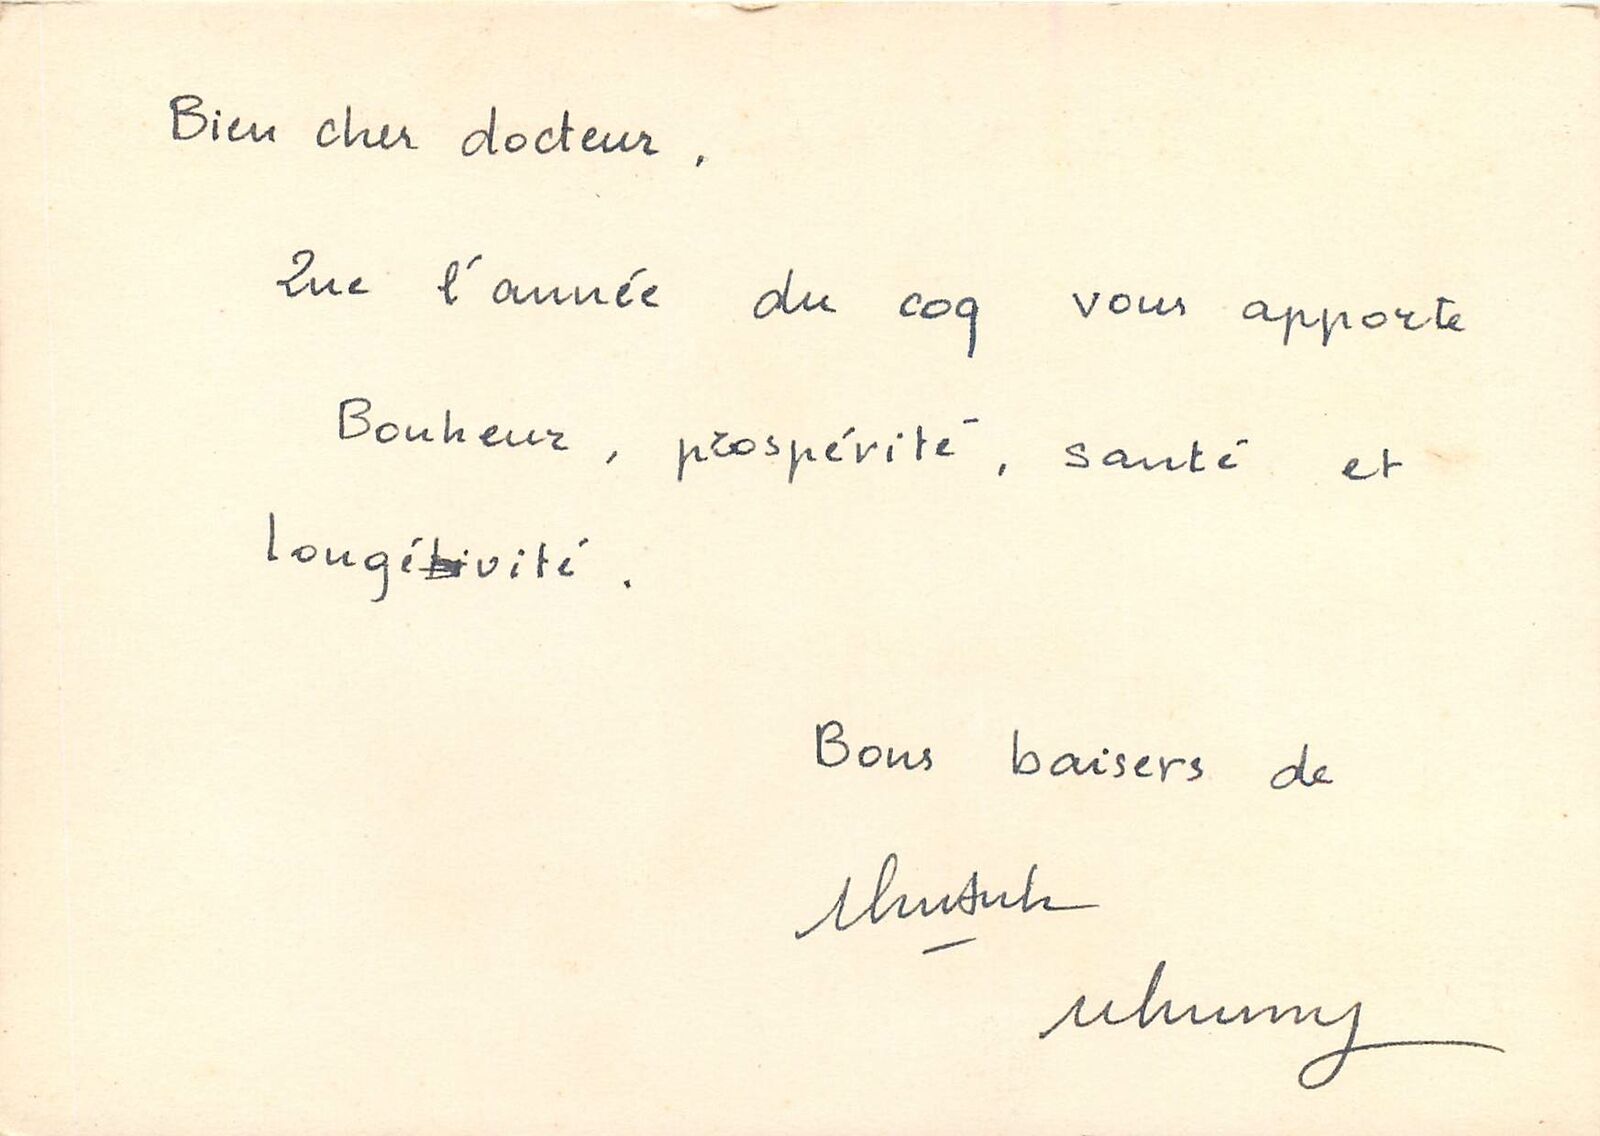 Bien cher docteur,
Que l'année du coq vous apporte
Bonheur, prospérité, santé et
longévité.
Bons baisers de